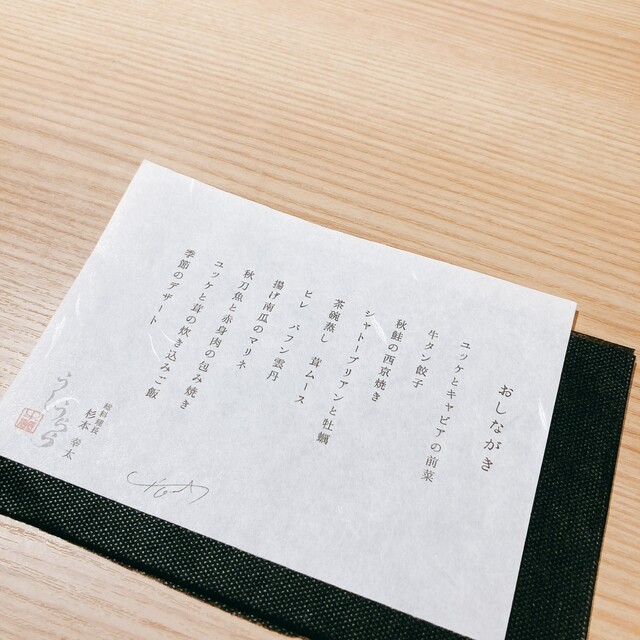 おしながき
ユッケとキャビアの前菜
牛タン餃子
秋鮭の西京焼き
シャトーブリアンと牡蠣
茶碗蒸し 茸ムース
ヒレ バフン雲丹
揚げ南瓜のマリネ
秋刀魚と赤身肉の包み焼き
ユッケと茸の炊き込みご飯
季節のデザート
総料理長
杉本 幸太